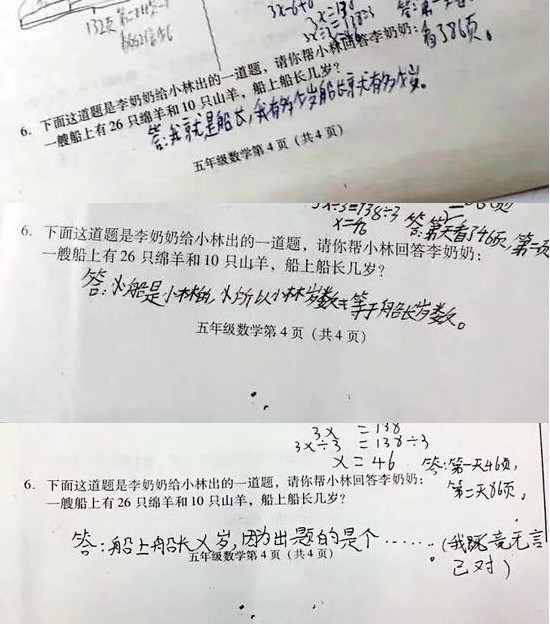 132页
3x-6+6
3x=138
3x÷3=138÷3
看了86页。
6. 下面这道题是李奶奶给小林出的一道题，请你帮小林回答李奶奶：
一艘船上有26只绵羊和10只山羊，船上船长几岁？
答：我就是船长，我有多少岁船长就有多少岁。
五年级数学第4页（共4页）
3x÷3=138÷3
x=46
答：第一天看了46页，第二页
6. 下面这道题是李奶奶给小林出的一道题，请你帮小林回答李奶奶：
一艘船上有26只绵羊和10只山羊，船上船长几岁？
答：船是小林的，所以小林岁数等于船长岁数。
五年级数学第4页（共4页）
3x = 138
3x÷3 = 138÷3
x = 46
答：第一天46页，
第二天86页。
6. 下面这道题是李奶奶给小林出的一道题，请你帮小林回答李奶奶：
一艘船上有26只绵羊和10只山羊，船上船长几岁？
答：船上船长X岁，因为出题的是个……（我既竟无言
已对）
五年级数学第4页（共4页）